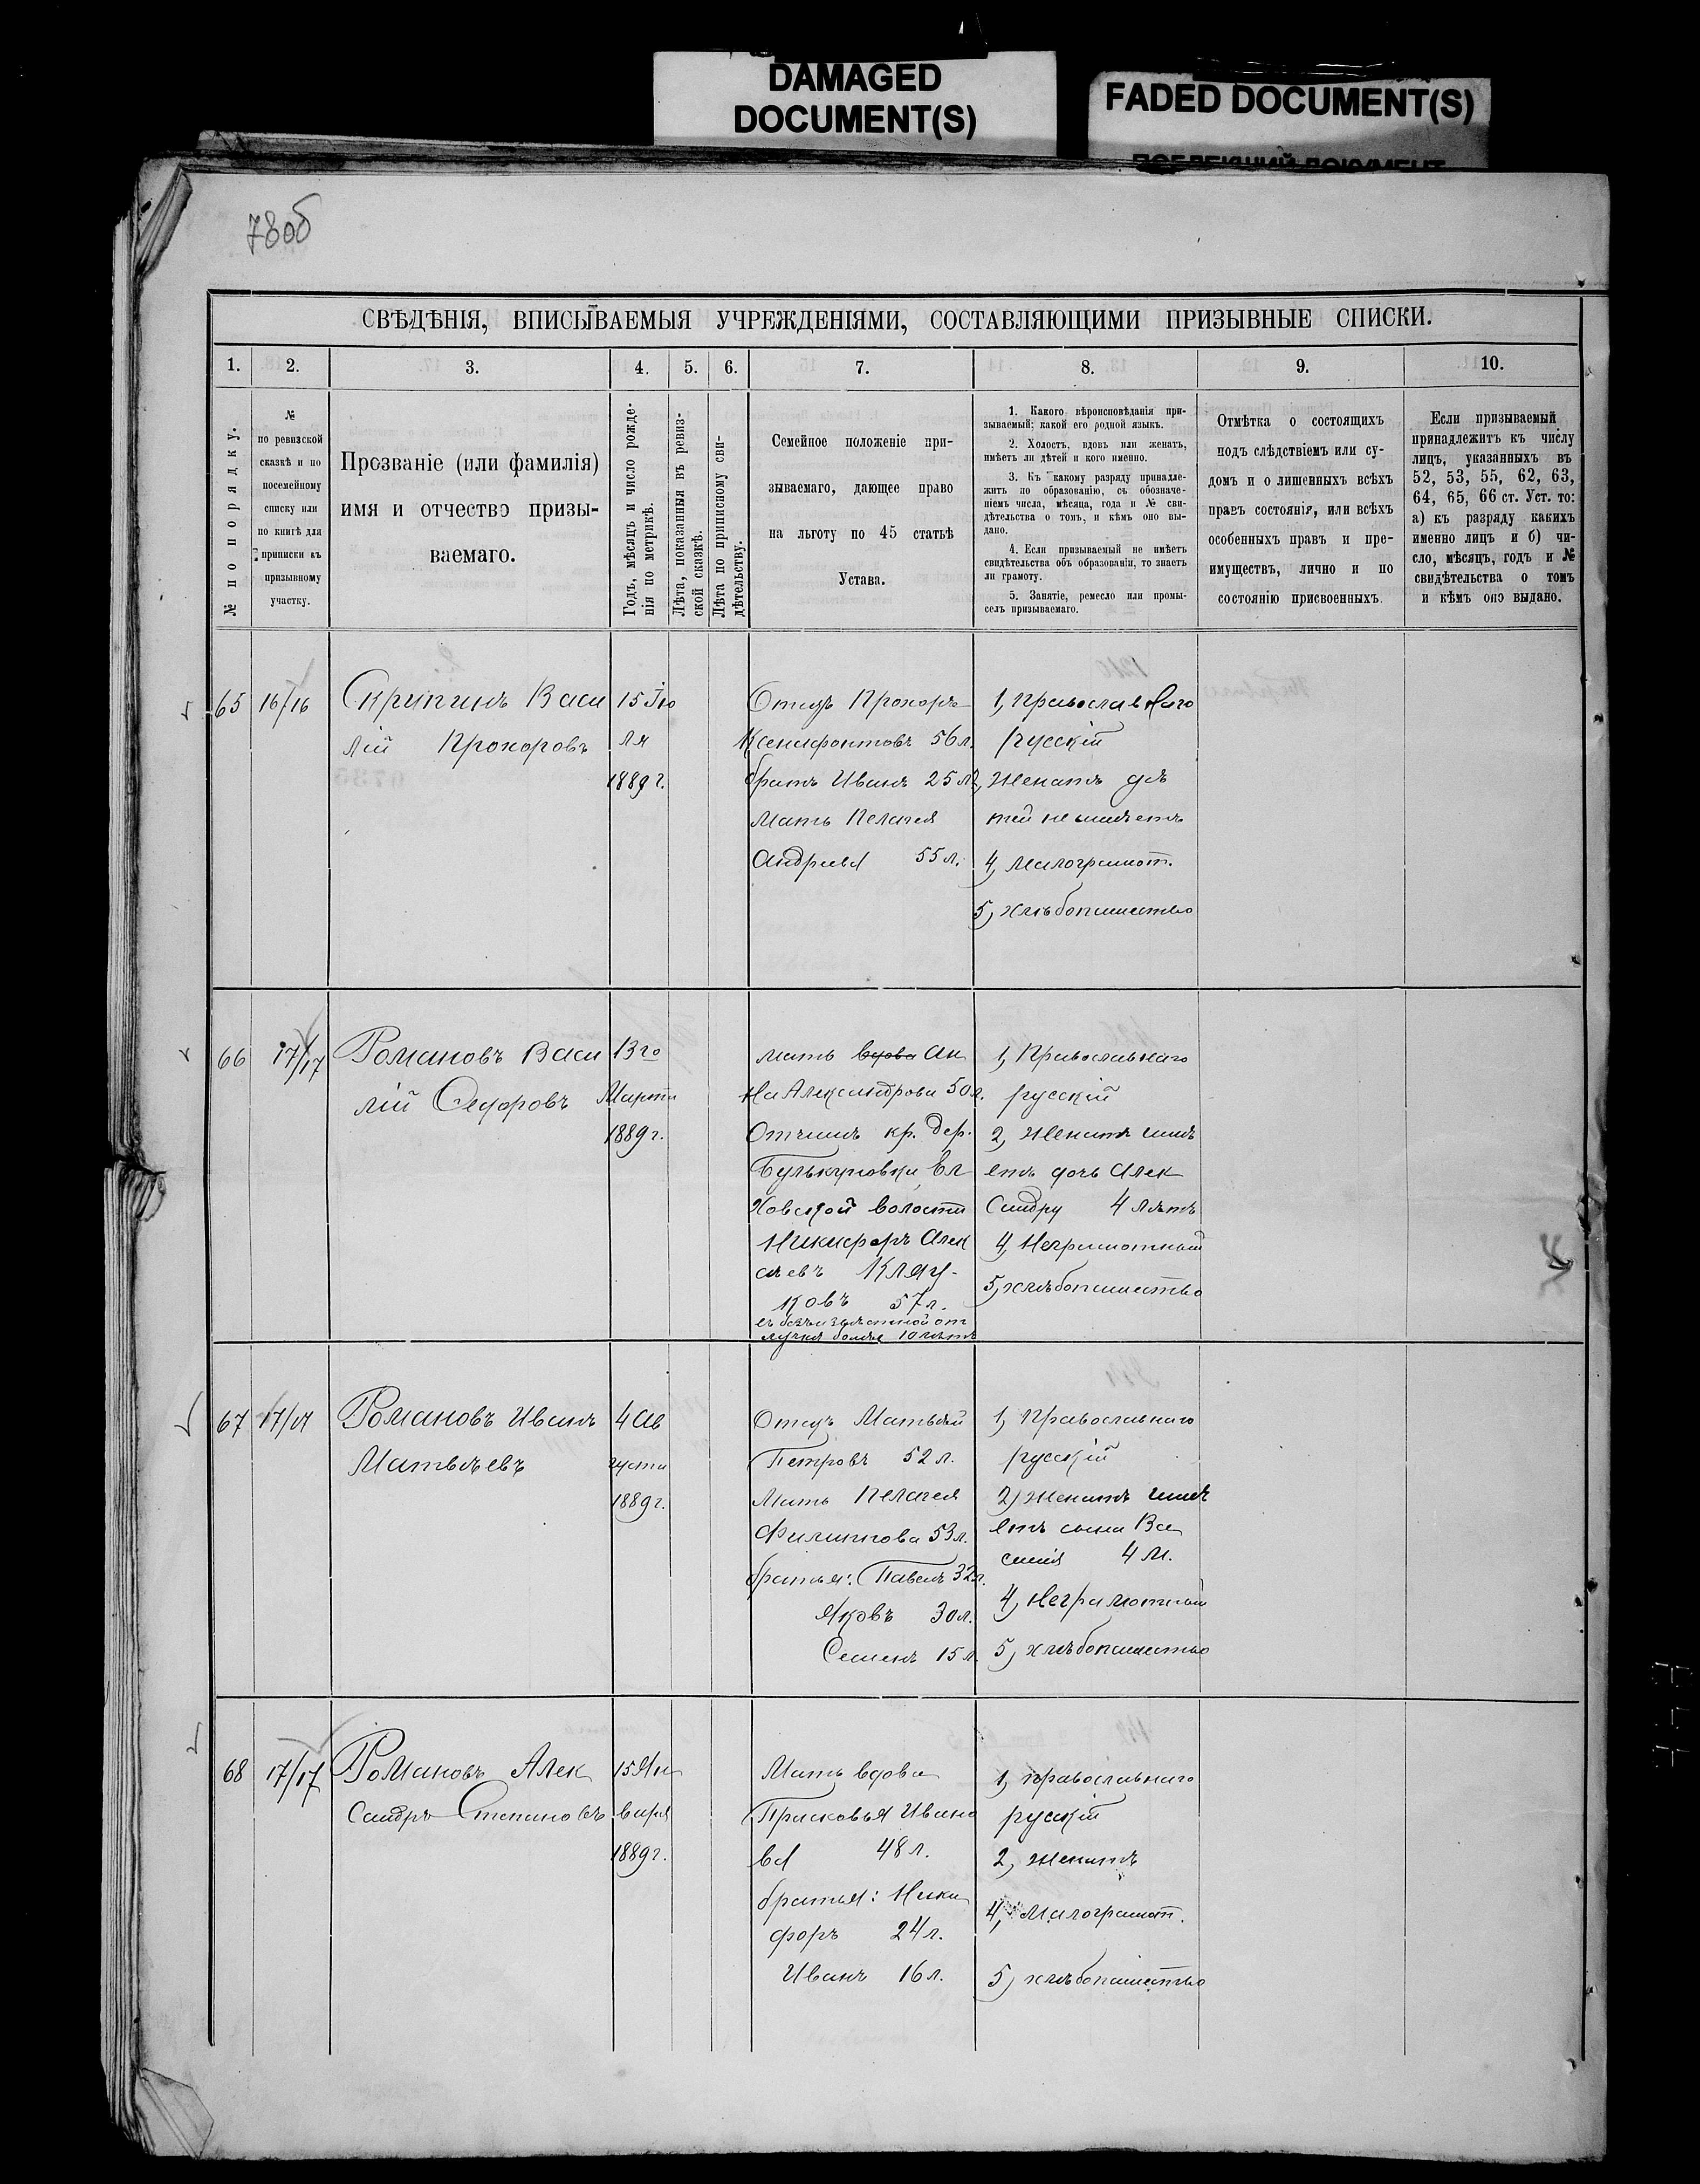 DAMAGED
DOCUMENT(S)
FADED DOCUMENT(S)
78об
СВѢДѢНІЯ, ВПИСЫВАЕМЫЯ УЧРЕЖДЕНІЯМИ, СОСТАВЛЯЮЩИМИ ПРИЗЫВНЫЕ СПИСКИ.
1. 2. 3. 4. 5. 6. 7. 8. 9. 10.
№ по порядку.
№
по ревизской
сказкѣ и по
посемейному
списку или
по книгѣ для
приписки къ
призывному
участку.
Прозваніе (или фамилія)
имя и отчество призы-
ваемаго.
Годъ, мѣсяцъ и число рожде-
нія по метрикѣ.
Лѣта, показанныя въ ревиз-
ской сказкѣ.
Лѣта по приписному сви-
дѣтельству.
Семейное положеніе при-
зываемаго, дающее право
на льготу по 45 статьѣ
Устава.
1. Какого вѣроисповѣданія при-
зываемый; какой его родной языкъ.
2. Холостъ, вдовъ или женатъ,
имѣетъ ли дѣтей и кого именно.
3. Къ какому разряду принадле-
житъ по образованію, съ обозначе-
ніемъ числа, мѣсяца, года и № сви-
дѣтельства о томъ, и кѣмъ оно вы-
дано.
4. Если призываемый не имѣетъ
свидѣтельства объ образованіи, то знаетъ
ли грамоту.
5. Занятіе, ремесло или промы-
селъ призываемаго.
Отмѣтка о состоящихъ
подъ слѣдствіемъ или су-
домъ и о лишенныхъ всѣхъ
правъ состоянія, или всѣхъ
особенныхъ правъ и пре-
имуществъ, лично и по
состоянію присвоенныхъ.
Если призываемый
принадлежитъ къ числу
лицъ, указанныхъ въ
52, 53, 55, 62, 63,
64, 65, 66 ст. Уст. то:
а) къ разряду какихъ
именно лицъ и б) чи-
сло, мѣсяцъ, годъ и №
свидѣтельства о томъ
и кѣмъ оно выдано.
65
16/16
Скрипинъ Васи
лій Прохоровъ
15 Ію
ля
1889 г.
Отецъ Прохоръ
Ксенифонтовъ 56 л.
братъ Иванъ 25 л.
Мать Пелагея
Андреева 55 л.
1, Православнаго
русскій
2, Женатъ дѣ
тей не имѣетъ
4, Малограмот.
5, хлѣбопашество
66
17/17
Романовъ Васи
лій Ѳедоровъ
13го
Марта
1889 г.
Мать вдова Ан
на Александрова 50 л.
Отчимъ кр. дер.
Ел
ховской волости
Никифоръ Алек
сѣевъ
ковъ 57 л.
въ безъизвѣстной от
лучкѣ болѣе 10 лѣтъ
1, Православнаго
русскій
2, Женатъ имѣ
етъ дочь Алек
сандру 4 лѣтъ
4, Неграмотный
5, хлѣбопашество
67
17/17
Романовъ Иванъ
Матвѣевъ
4 Ав
густа
1889 г.
Отецъ Матвѣй
Петровъ 52 л.
Мать Пелагея
Филиппова 53 л.
братья: Павелъ 32 л.
Яковъ 30 л.
Семенъ 15 л.
1, Православнаго
русскій
2, Женатъ имѣ
етъ сына Ва
силія 4 м.
4, Неграмотный
5, хлѣбопашество
68
17/17
Романовъ Алек
сандръ Степановъ
15 Ян
варя
1889 г.
Мать вдова
Прасковья Ивано
ва 48 л.
братья: Ники
форъ 24 л.
Иванъ 16 л.
1, православнаго
русскій
2, женатъ
4, Малограмот.
5, хлѣбопашество